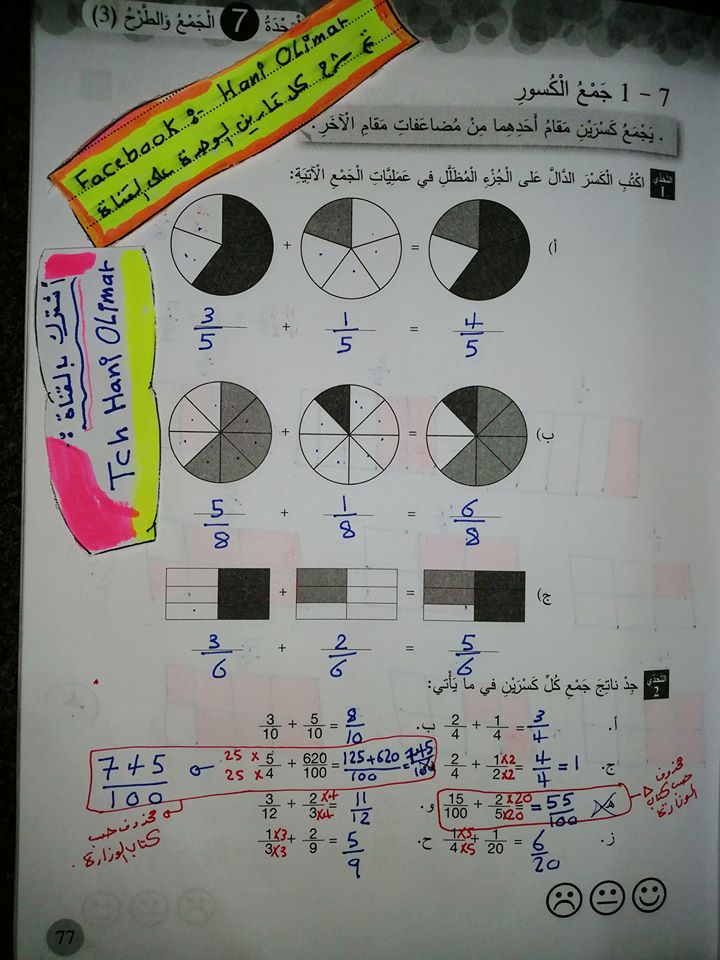 الْوَحْدَةُ 7 الْجَمْعُ وَالطَّرْحُ (3)
Facebook :- Hani OLimar
تم شرح كل تمارين الوحدة على القناة
7 - 1 جَمْعُ الْكُسورِ
. يَجْمَعُ كَسْرَيْنِ مَقامُ أَحَدِهِما مِنْ مُضاعَفاتِ مَقامِ الْآخَرِ.
التَّحَدّي 1 اكْتُبِ الْكَسْرَ الدَّالَّ عَلى الْجُزْءِ الْمُظَلَّلِ في عَمَلِيَّاتِ الْجَمْعِ الْآتِيَةِ:
أ)
+ =
3/5 + 1/5 = 4/5
اشترك بالقناة :
Tch Hani OLimar
ب)
+ =
5/8 + 1/8 = 6/8
ج)
+ =
3/6 + 2/6 = 5/6
التَّحَدّي 2 جِدْ ناتِجَ جَمْعِ كُلِّ كَسْرَيْنِ في ما يَأْتي:
أ. 2/4 + 1/4 = 3/4
ب. 3/10 + 5/10 = 8/10
ج. 2/4 + 1×2/2×2 = 4/4 = 1
25 × 5/25 × 4 + 620/100 = 125+620/100 = 745/100
745/100
محذوف حسب
كتاب الوزارة
15/100 + 2×20/5×20 = 55/100 هـ
محذوف
حسب كتاب
الوزارة
و. 3/12 + 2×4/3×4 = 11/12
ز. 1×5/4×5 + 1/20 = 6/20
ح. 1×3/3×3 + 2/9 = 5/9
77